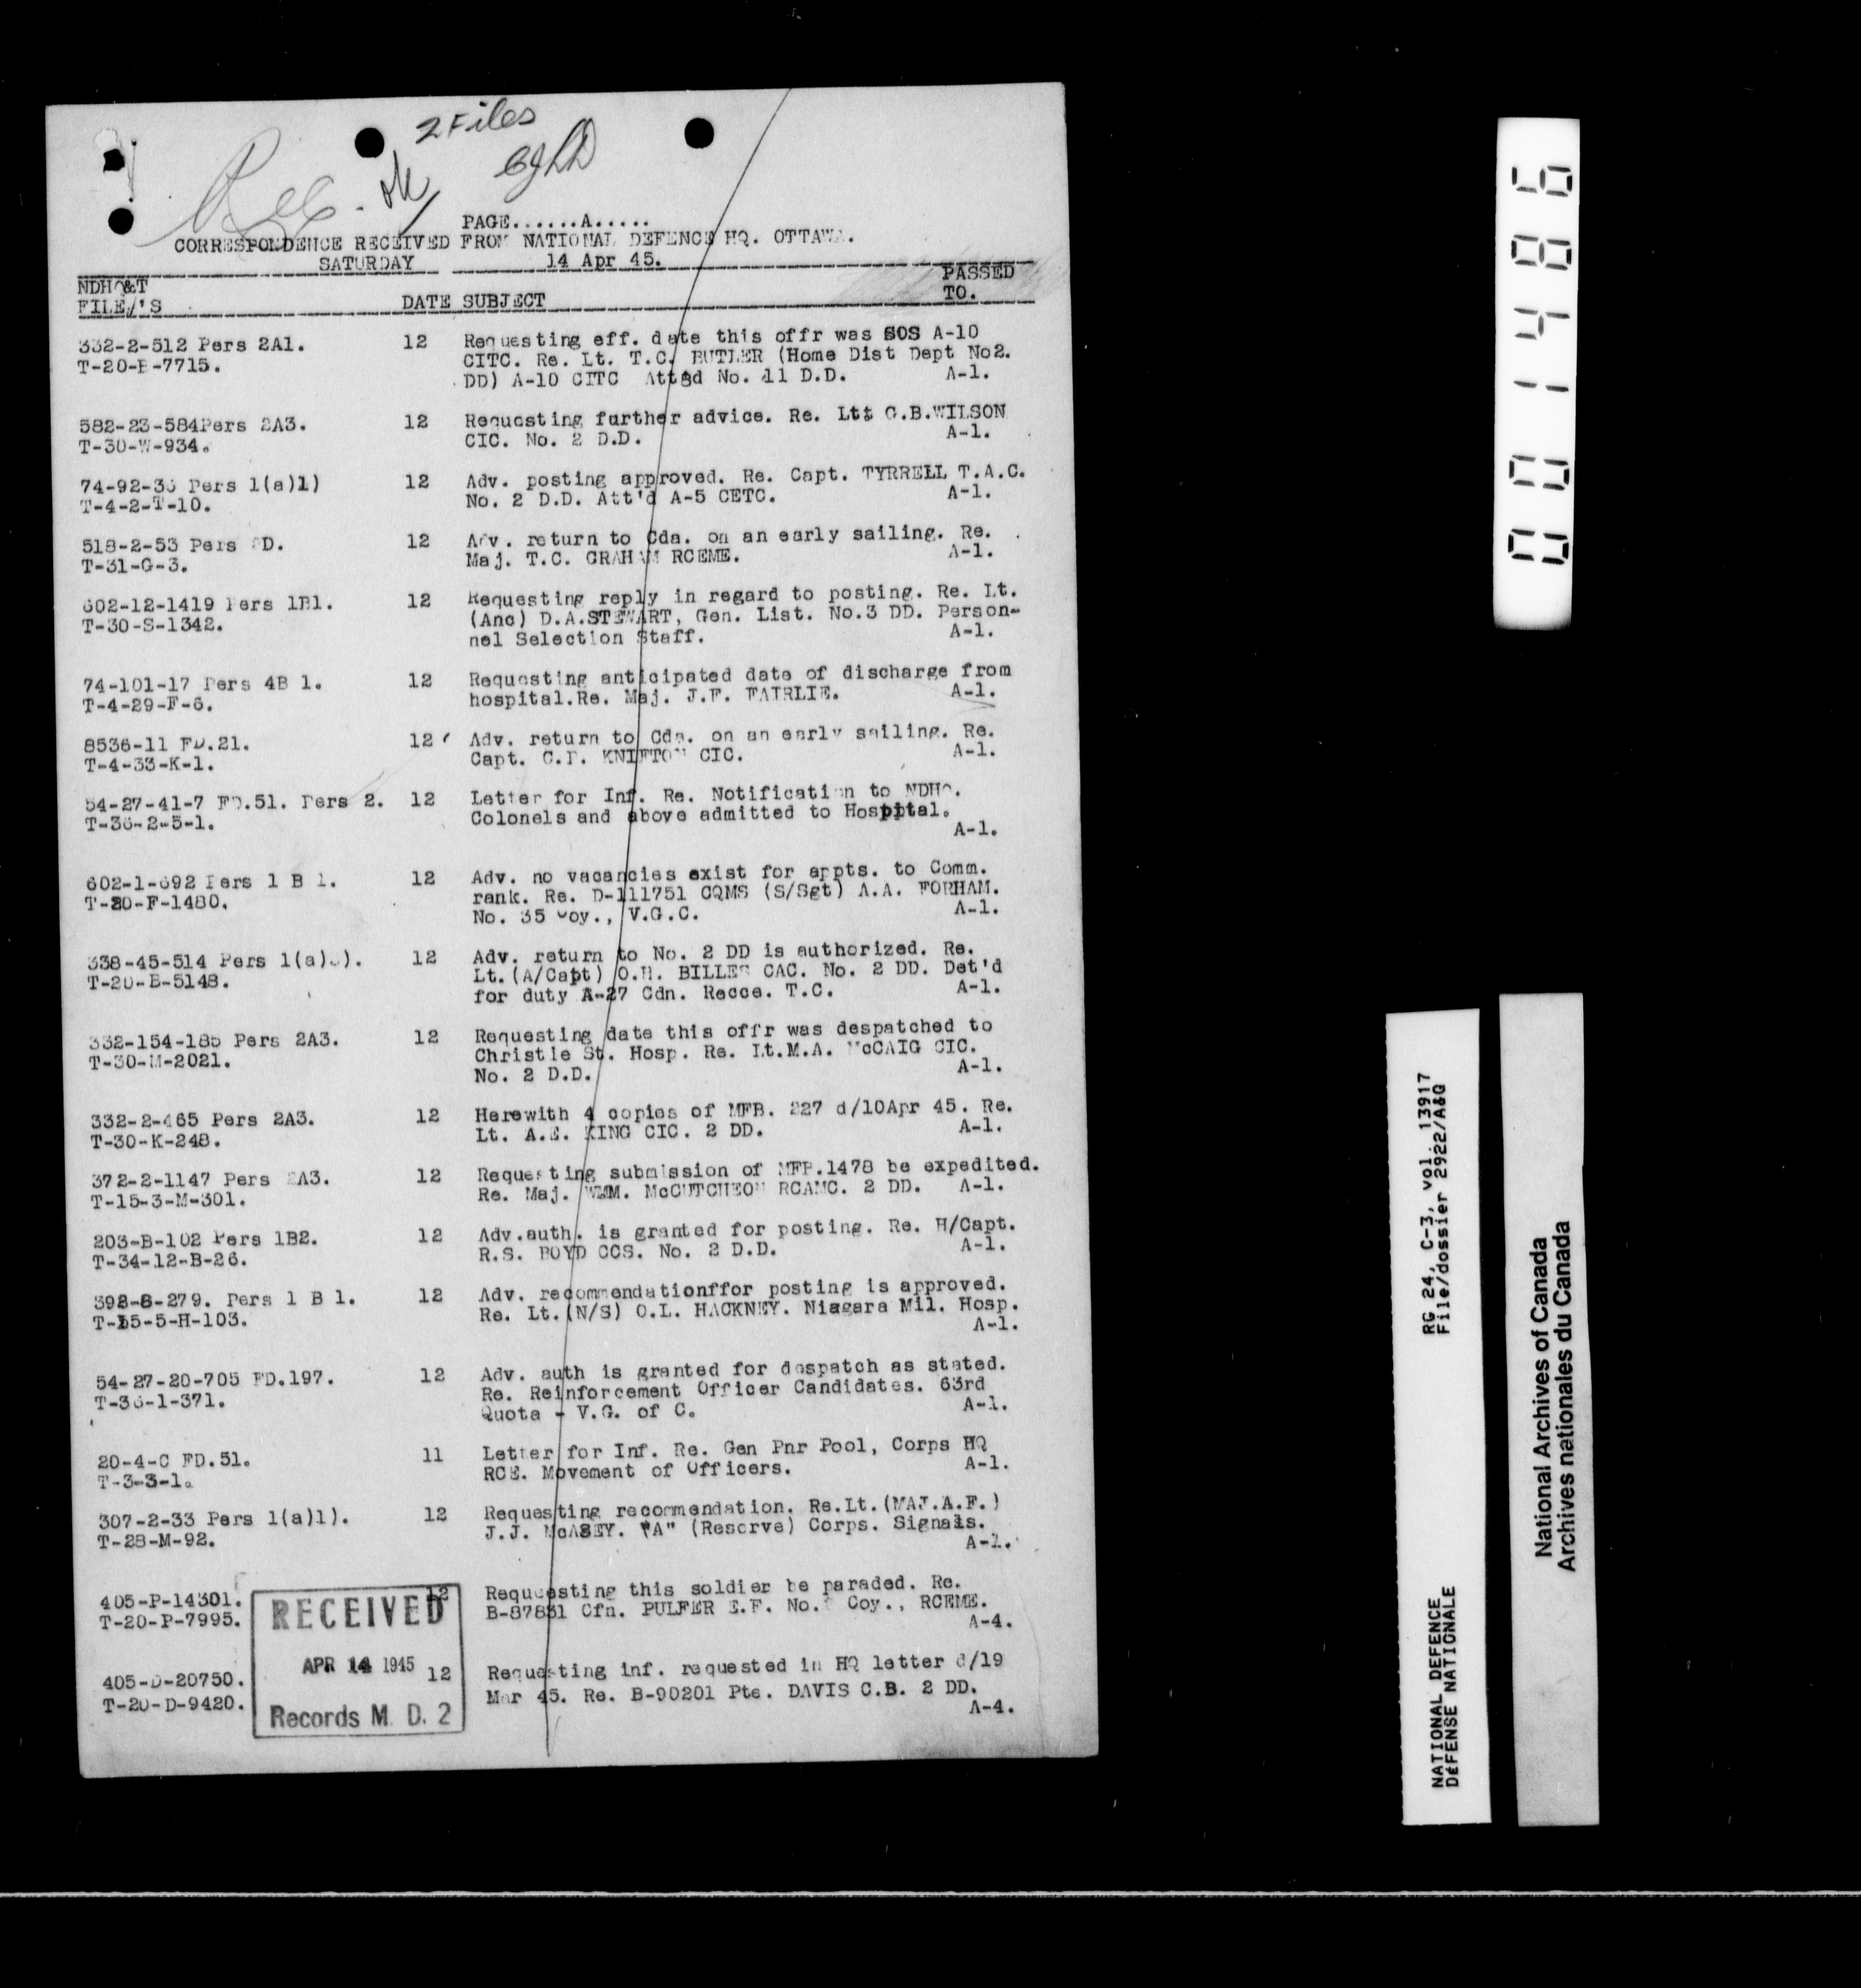 2 Files
Rec. ok
PAGE......A.....
CORRESPONDENCE RECEIVED FROM NATIONAL DEFENCE HQ. OTTAWA.
SATURDAY 14 Apr 45.
NDHQ&T PASSED
FILE/'S DATE SUBJECT TO.
332-2-512 Pers 2A1. 12 Requesting eff. date this offr was SOS A-10
T-20-B-7715. CITC. Re. Lt. T.C. BUTLER (Home Dist Dept No2.
DD) A-10 CITC Attsd No. 11 D.D. A-1.
582-23-584Pers 2A3. 12 Requesting further advice. Re. Ltt G.B.WILSON
T-30-W-934. CIC. No. 2 D.D. A-1.
74-92-35 Pers 1(a)1) 12 Adv. posting approved. Re. Capt. TYRRELL T.A.C.
T-4-2-T-10. No. 2 D.D. Att'd A-5 CETC. A-1.
518-2-53 Pers D. 12 Adv. return to Cda. on an early sailing. Re.
T-31-G-3. Maj. T.C. GRAHAM RCEME. A-1.
602-12-1419 Pers 1B1. 12 Requesting reply in regard to posting. Re. Lt.
T-30-S-1342. (Anc) D.A.STEWART, Gen. List. No.3 DD. Person-
nel Selection Staff. A-1.
74-101-17 Pers 4B 1. 12 Requesting anticipated date of discharge from
T-4-29-F-6. hospital.Re. Maj. J.F. FAIRLIE. A-1.
8536-11 FD.21. 12 Adv. return to Cda. on an early sailing. Re.
T-4-33-K-1. Capt. C.F. KNIFTON CIC. A-1.
54-27-41-7 FD.51. Pers 2. 12 Letter for Inf. Re. Notification to NDHQ.
T-36-2-5-1. Colonels and above admitted to Hospptal.
A-1.
602-1-692 Pers 1 B 1. 12 Adv. no vacancies exist for appts. to Comm.
T-20-F-1480. rank. Re. D-111751 CQMS (S/Sgt) A.A. FORHAM.
No. 35 Coy., V.G.C. A-1.
338-45-514 Pers 1(a) ). 12 Adv. return to No. 2 DD is authorized. Re.
T-20-B-5148. Lt.(A/Capt) O.H. BILLES CAC. No. 2 DD. Det'd
for duty A-27 Cdn. Recce. T.C. A-1.
332-154-185 Pers 2A3. 12 Requesting date this offr was despatched to
T-30-M-2021. Christie St. Hosp. Re. Lt.M.A. McCAIG CIC.
No. 2 D.D. A-1.
332-2-465 Pers 2A3. 12 Herewith 4 copies of MFB. 227 d/10Apr 45. Re.
T-30-K-248. Lt. A.E. KING CIC. 2 DD. A-1.
372-2-1147 Pers 2A3. 12 Requesting submission of MFB.1478 be expedited.
T-15-3-M-301. Re. Maj. WMM. McCUTCHEON RCAMC. 2 DD. A-1.
203-B-102 Pers 1B2. 12 Adv.auth. is granted for posting. Re. H/Capt.
T-34-12-B-26. R.S. BOYD CCS. No. 2 D.D. A-1.
398-8-279. Pers 1 B 1. 12 Adv. recommendationffor posting is approved.
T-15-5-H-103. Re. Lt.(N/S) O.L. HACKNEY. Niagara Mil. Hosp.
A-1.
54-27-20-705 FD.197. 12 Adv. auth is granted for despatch as stated.
T-36-1-371. Re. Reinforcement Officer Candidates. 63rd
Quota - V.G. of C. A-1.
20-4-C FD.51. 11 Letter for Inf. Re. Gen Pnr Pool, Corps HQ
T-3-3-1. RCE. Movement of Officers. A-1.
307-2-33 Pers 1(a)1). 12 Requesting recommendation. Re.Lt.(MAJ.A.F.)
T-28-M-92. J.J. McASEY. "A" (Reserve) Corps. Signals.
A-1.
405-P-14301. 12 Requeesting this soldier be paraded. Re.
T-20-P-7995. B-87831 Cfn. PULFER E.F. No. Coy., RCEME.
A-4.
405-D-20750. 12 Requesting inf. requested in HQ letter d/19
T-20-D-9420. Mar 45. Re. B-90201 Pte. DAVIS C.B. 2 DD.
A-4.
RECEIVED
APR 14 1945
Records M. D. 2
001486
RG 24, C-3, vol. 13917
File/dossier 2922/A&Q
NATIONAL DEFENCE
DÉFENSE NATIONALE
National Archives of Canada
Archives nationales du Canada